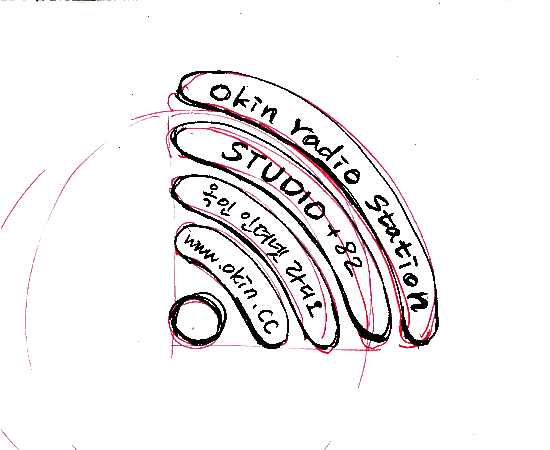 Okin radio Station
STUDIO+82
옥인 인터넷 라디오
www.okin.cc